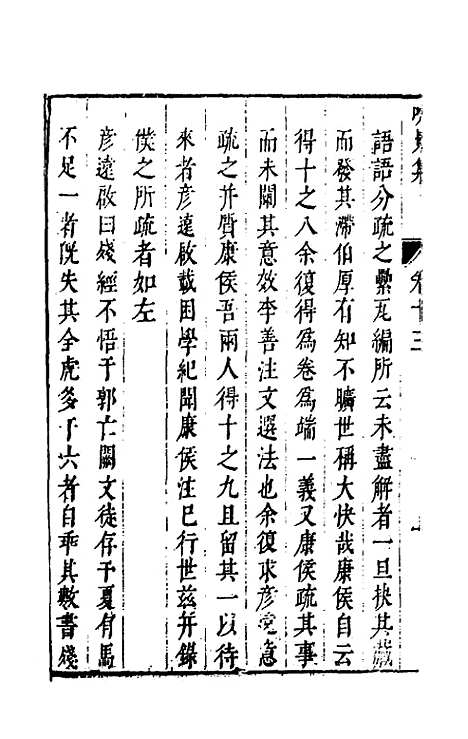 語語分疏之縶瓦編所云未盡解者一旦抉其藏
而發其滯伯厚有知不曠世稱大快哉康侯自云
得十之八余復得爲卷爲端一義又康侯疏其事
而未闡其意效李善注文選法也余復求彦遠意
疏之并質康侯吾兩人得十之九且留其一以待
來者彦遠啟載困學紀聞康侯注已行世茲并錄
僕之所疏者如左
彦遠啟曰殘經不悟于郭亡闕文徒存于夏有馬
不足一者旣失其全虎多于六者自乖其數書殘
卷十三